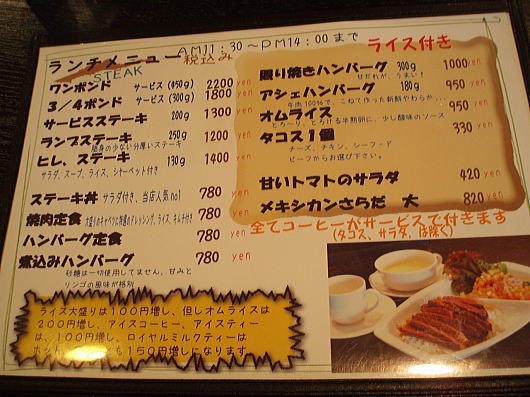 ランチメニュー 税込み AM11:30~PM14:00まで
STEAK
ワンポンド サービス(450g) 2200 yen
3/4ポンド サービス(300g) 1800 yen
サービスステーキ 200g 1300 yen
ランプステーキ 250g 1200 yen
脂身の少ない分厚いステーキ
ヒレ、ステーキ 130g 1400 yen
サラダ、スープ、ライス、シャーベット付き
ステーキ丼 サラダ付き、当店人気no1 780 yen
焼肉定食 ライス、キムチ付き 780 yen
ハンバーグ定食 780 yen
煮込みハンバーグ 780 yen
砂糖は一切使用してません、甘みと
リンゴの風味が格別
ライス大盛りは100円増し、但しオムライスは
200円増し、アイスコーヒー、アイスティー
は、100円増し、ロイヤルミルクティーは
も150円増しになります
ライス付き
照り焼きハンバーグ 300g 1000 yen
甘だれが、うまい!
アシェハンバーグ 180g 950 yen
牛肉100%で、こねて作った新鮮やわらか...
オムライス 950 yen
とろ~り、とろける半熟卵に、少し酸味のソース
タコス1個 330 yen
チーズ、チキン、シーフード
ビーフからお選び下さい。
甘いトマトのサラダ 420 yen
メキシカンさらだ 大 820 yen
全てコーヒーがサービスで付きます
(タコス、サラダ、は除く)